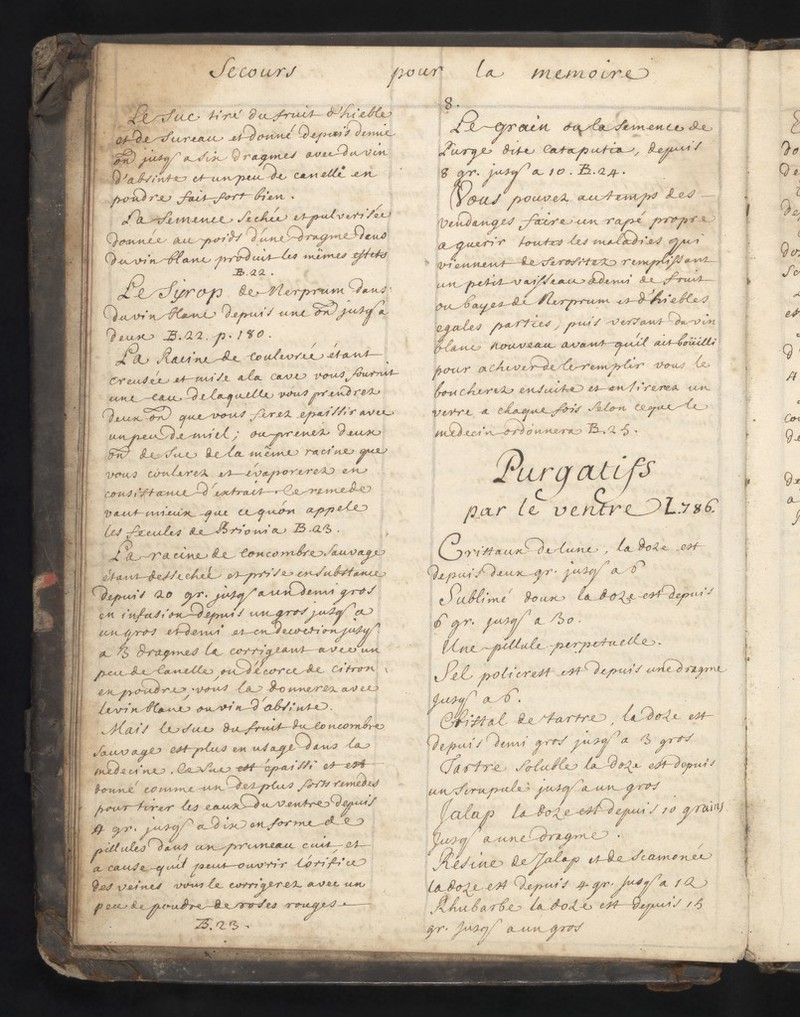 Secours pour la memoire
Le Suc tiré du fruit d'hieble
et de Sureau et donné depuis demie
on̄ jusq' a Six dragmes avec du vin
d'absinte et un peu de canelle en
poudre fait fort bien.
La Semence Sechée et pulverisée
donnée au poids d'une dragme dans
du vin blanc produit les mêmes effets
B.22.
Le Syrop de Nerprum dans
du vin blanc depuis une on̄ jusq' a
deux B.22. p. 180.
La Racine de Coulevrée étant
creusée et mise a la cave vous fournit
une eau de laquelle vous prendrez
deux on̄ que vous ferez epaissir avec
un peu de miel; ou prenez deux
on̄ de Suc de la même racine que
vous coulerez et évaporerez en
consistance d'extrait. Ce remede
vaut mieux que ce qu'on appele
les fecules de Brionia B.23.
La racine de Concombre Sauvage
étant dessechée et prise en substance
depuis 20 gr. jusq' a un demi gros
en infusion depuis un gros jusq' a
un gros et demi et en decoction jusq'
a 3 dragmes la corrigeant avec un
peu de Canelle, ou d'écorce de citron
en poudre, vous la donnerez avec
le vin blanc ou vin d'absinte.
Mais le Suc du fruit du Concombre
Sauvage est plus en usage dans la
medecine. Ce Suc est épaissi et est
donné comme un des plus forts remedes
pour tirer les eaux du ventre depuis
4 gr. jusq' a dix en forme de
pillules dans un pruneau cuit et
a cause qu'il peut ouvrir l'orifice
des veines vous le corrigerez avec un
peu de poudre de roses rouges
B.23.
8.
Le grain ou la Semence de
Purge dite Cataputia, depuis
8 gr. jusq' a 10. B.24.
Vous pouvez au temps des
vendanges faire un rapé propre
a guerir toutes les maladies qui
viennent de Serositez remplissant
un petit vaisseau a demi de fruit
ou bayes de Nerprum et d'hiebles
egales parties, puis versant du vin
blanc nouveau avant qu'il ait boüilli
pour achever de le remplir vous le
boucherez ensuite et en tirerez un
verre a chaque fois Selon ce que le
medecin ordonnera B.25.
Purgatifs
par le ventre L.786.
Cristaux de lune, la doze est
depuis deux gr. jusq' a 6
Sublimé doux la doze est depuis
6 gr. jusq' a 30.
Une pillule perpetuelle.
Sel policrest est depuis une dragme
jusq' a 6.
Christal de tartre, la doze est
depuis demi gros jusq' a 3 gros
Tartre Soluble la doze est depuis
un Scrupule jusq' a un gros
Jalap la doze est depuis 10 grains
jusq' a une dragme.
Résine de Jalap et de Scamonée
la doze est depuis 4 gr. jusq' a 12
Rhubarbe la doze est depuis 15
gr. jusq' a un gros